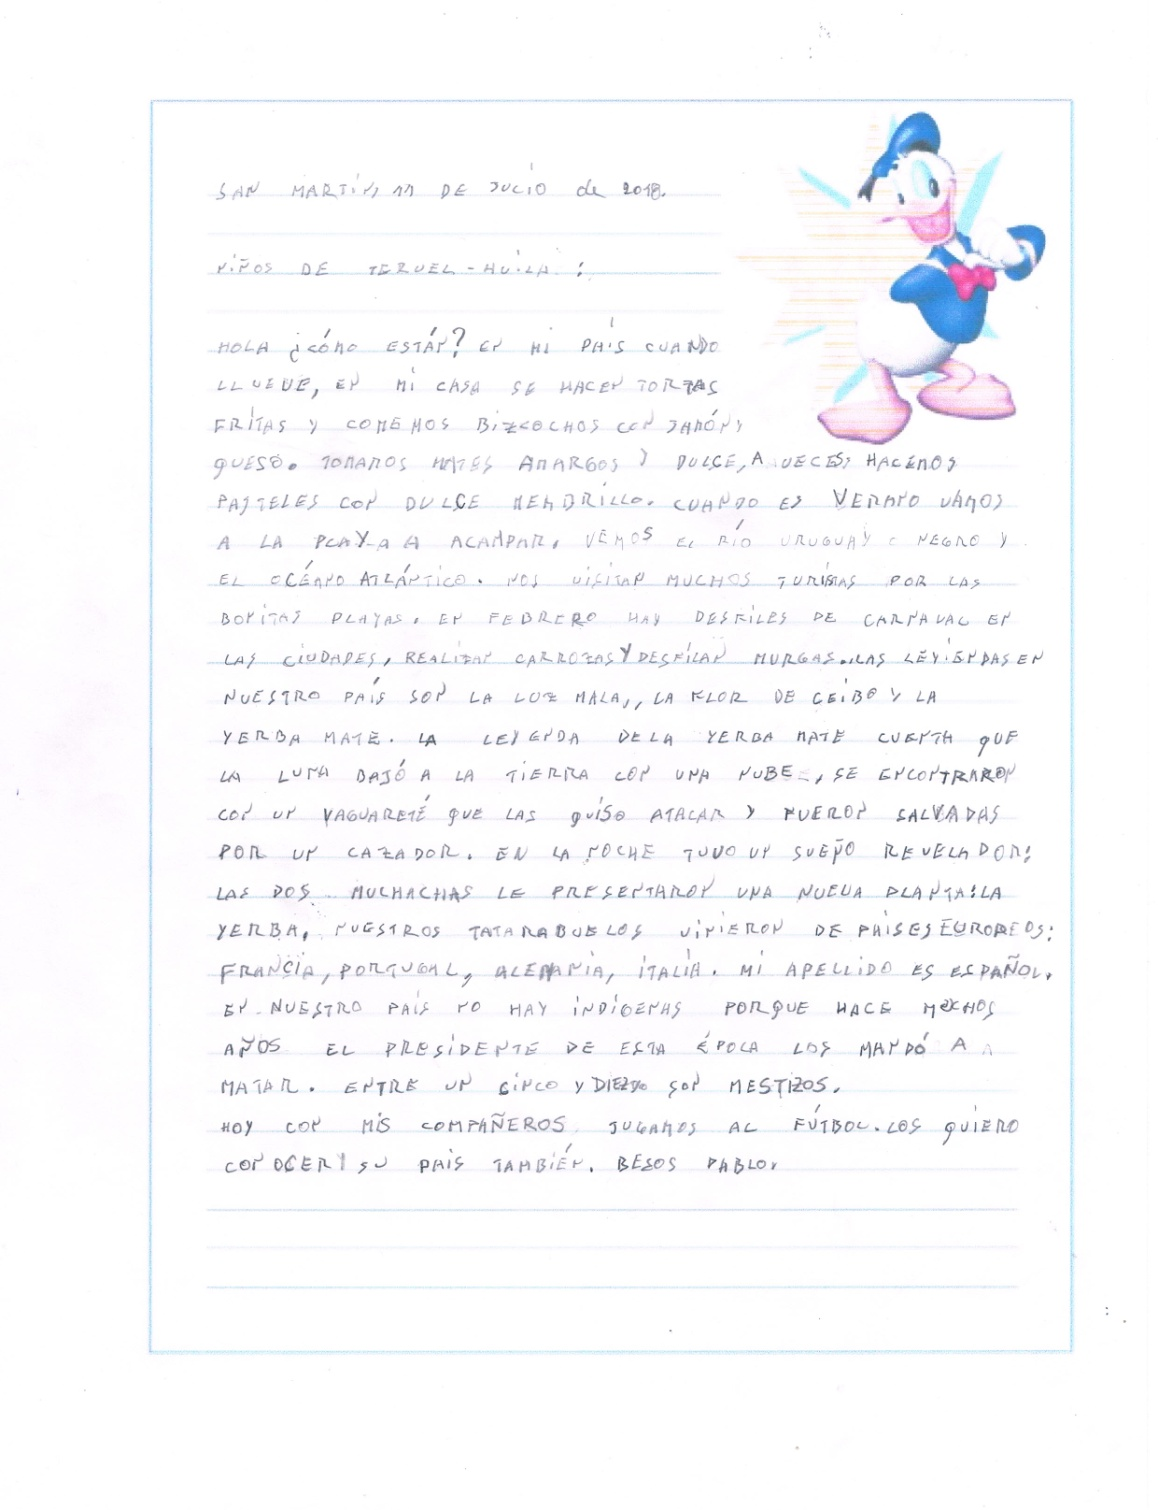 SAN MARTÍN, 11 DE JULIO de 2018.
NIÑOS DE TERUEL - HUILA :
HOLA ¿CÓMO ESTÁN? EN MI PAÍS CUANDO
LLUEVE, EN MI CASA SE HACEN TORTAS
FRITAS Y COMEMOS BIZCOCHOS CON JAMÓN Y
QUESO. TOMAMOS MATES AMARGOS Y DULCE, A VECES HACEMOS
PASTELES CON DULCE MEMBRILLO. CUANDO ES VERANO VAMOS
A LA PLAYA A ACAMPAR. VEMOS EL RÍO URUGUAY O NEGRO Y
EL OCÉANO ATLÁNTICO. NOS VISITAN MUCHOS TURISTAS POR LAS
BONITAS PLAYAS. EN FEBRERO HAY DESFILES DE CARNAVAL EN
LAS CIUDADES, REALIZAN CARROZAS Y DESFILAN MURGAS. LAS LEYIENDAS EN
NUESTRO PAÍS SON LA LUZ MALA,, LA FLOR DE CEIBO Y LA
YERBA MATE. LA LEYENDA DE LA YERBA MATE CUENTA QUE
LA LUNA BAJÓ A LA TIERRA CON UNA NUBE, SE ENCONTRARON
CON UN YAGUARETÉ QUE LAS QUISO ATACAR Y FUERON SALVADAS
POR UN CAZADOR. EN LA NOCHE TUVO UN SUEÑO REVELADOR:
LAS DOS MUCHACHAS LE PRESENTARON UNA NUEVA PLANTA: LA
YERBA. NUESTROS TATARABUELOS VINIERON DE PAISES EUROPEOS:
FRANCIA, PORTUGAL, ALEMANIA, ITALIA. MI APELLIDO ES ESPAÑOL.
EN NUESTRO PAÍS NO HAY INDÍGENAS PORQUE HACE MUCHOS
AÑOS EL PRESIDENTE DE ESTA ÉPOCA LOS MANDÓ A
MATAR. ENTRE UN CINCO Y DIEZ SON MESTIZOS.
HOY CON MIS COMPAÑEROS JUGAMOS AL FÚTBOL. LOS QUIERO
CONOCER Y SU PAÍS TAMBIÉN. BESOS PABLO.